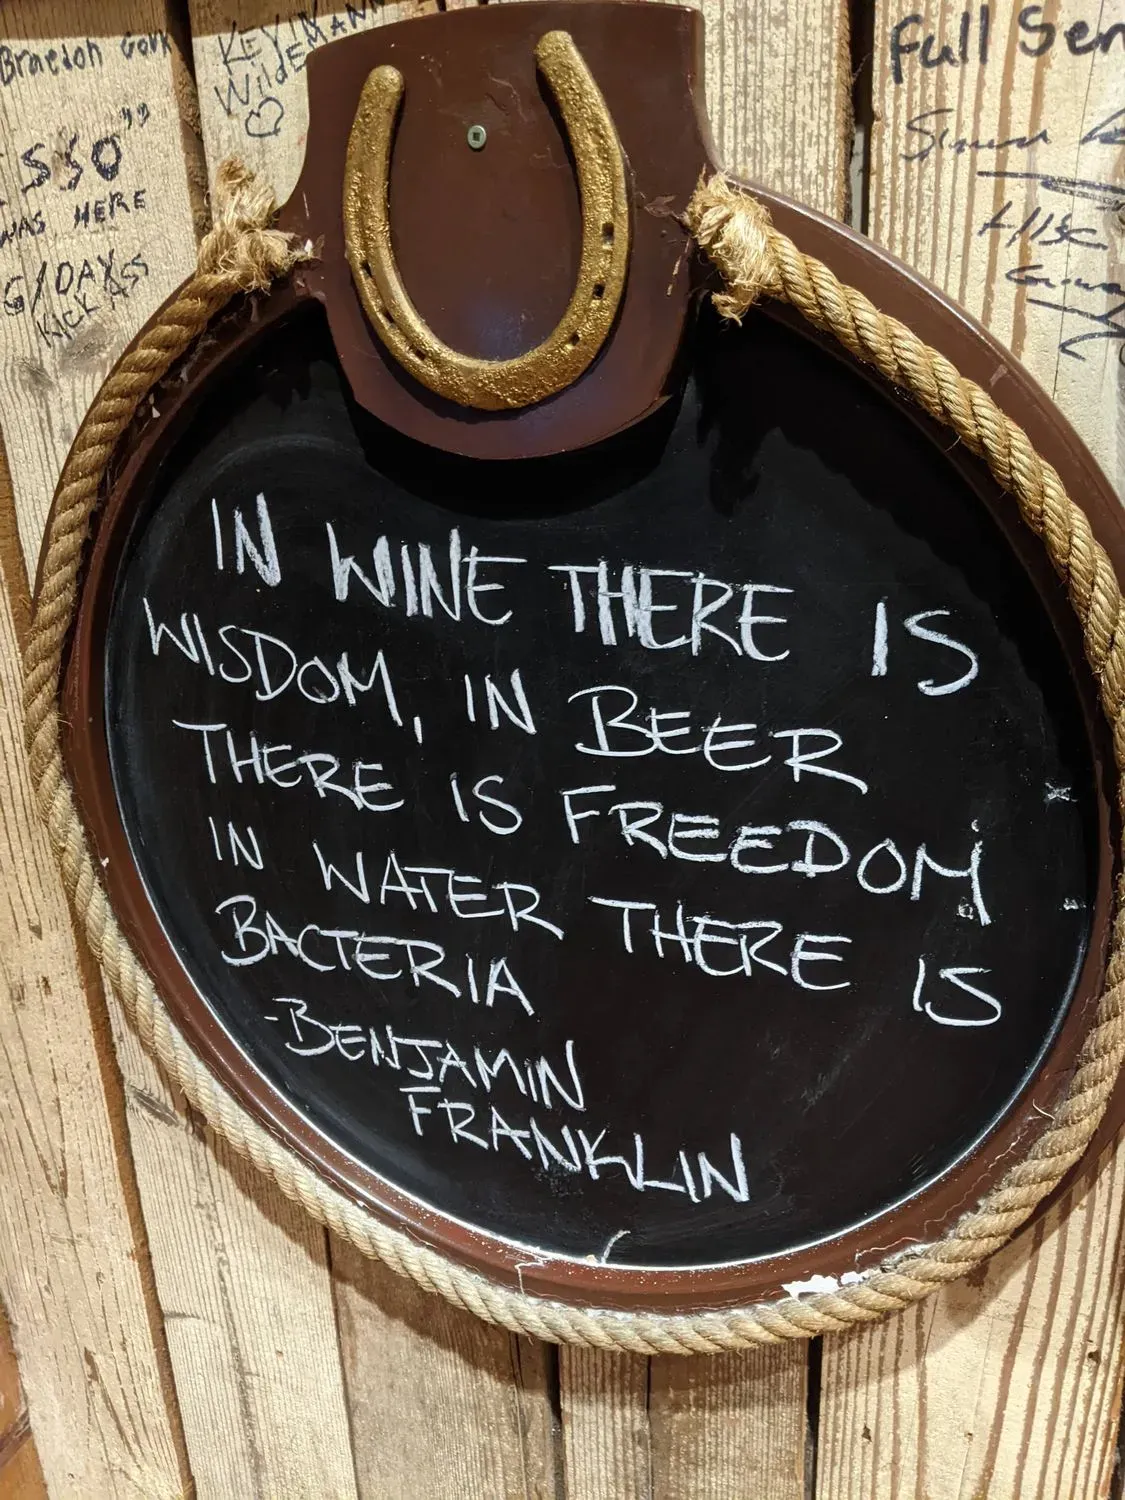 Braedon Gork
KEYLMANN
WildE
SSO"
WAS HERE
G/DAY
KICK ASS
Full Sen
IN WINE THERE IS
WISDOM, IN BEER
THERE IS FREEDOM,
IN WATER THERE IS
BACTERIA
-BENJAMIN
FRANKLIN